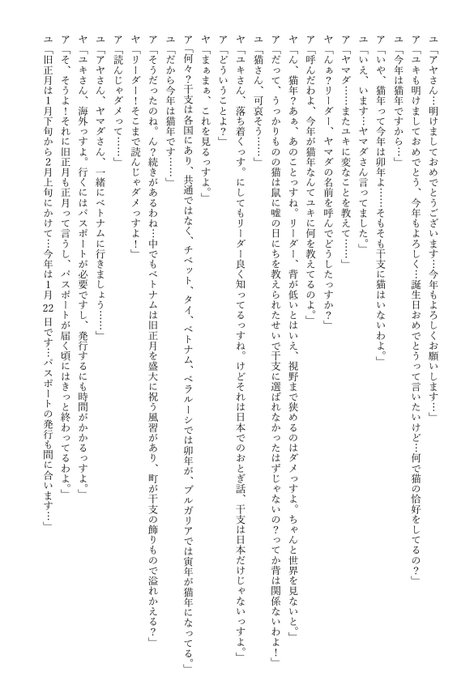 ユ「アヤさん…明けましておめでとうございます…今年もよろしくお願いします…」
ア「ユキも明けましておめでとう、今年もよろしく…誕生日おめでとうって言いたいけど…何で猫の恰好をしてるの？」
ユ「今年は猫年ですから…」
ア「いや、猫年って今年は卯年よ……そもそも干支に猫はいないわよ。」
ユ「いえ、います…ヤマダさん言ってました。」
ア「ヤマダ……またユキに変なことを教えて……」
ヤ「んぁ？リーダー、ヤマダの名前を呼んでどうしたっすか？」
ア「呼んだわよ、今年が猫年なんてユキに何を教えてるのよ。」
ヤ「ん、猫年？あぁ、あのことっすね。リーダー、背が低いとはいえ、視野まで狭めるのはダメっすよ。ちゃんと世界を見ないと。」
ア「だって、うっかりものの猫は鼠に嘘の日にちを教えられたせいで干支に選ばれなかったはずじゃないの？ってか背は関係ないわよ！」
ユ「猫さん、可哀そう……」
ヤ「ユキさん、落ち着くっす。にしてもリーダー良く知ってるっすね。けどそれは日本でのおとぎ話、干支は日本だけじゃないっすよ。」
ア「どういうことよ？」
ヤ「まぁまぁ、これを見るっすよ。」
ア「何々？干支は各国にあり、共通ではなく、チベット、タイ、ベトナム、ベラルーシでは卯年が、ブルガリアでは寅年が猫年になってる。」
ユ「だから今年は猫年です……」
ア「そうだったのね。ん？続きがあるわね…中でもベトナムは旧正月を盛大に祝う風習があり、町が干支の飾りもので溢れかえる？」
ヤ「リーダー！そこまで読んじゃダメっすよ！」
ア「読んじゃダメって……」
ユ「アヤさん、ヤマダさん、一緒にベトナムに行きましょう……」
ヤ「ユキさん、海外っすよ。行くにはパスポートが必要ですし、発行するにも時間がかかるっすよ。」
ア「そ、そうよ！それに旧正月も正月って言うし、パスポートが届く頃にはきっと終わってるわよ。」
ユ「旧正月は１月下旬から２月上旬にかけて…今年は１月22日です…パスポートの発行も間に合います…」